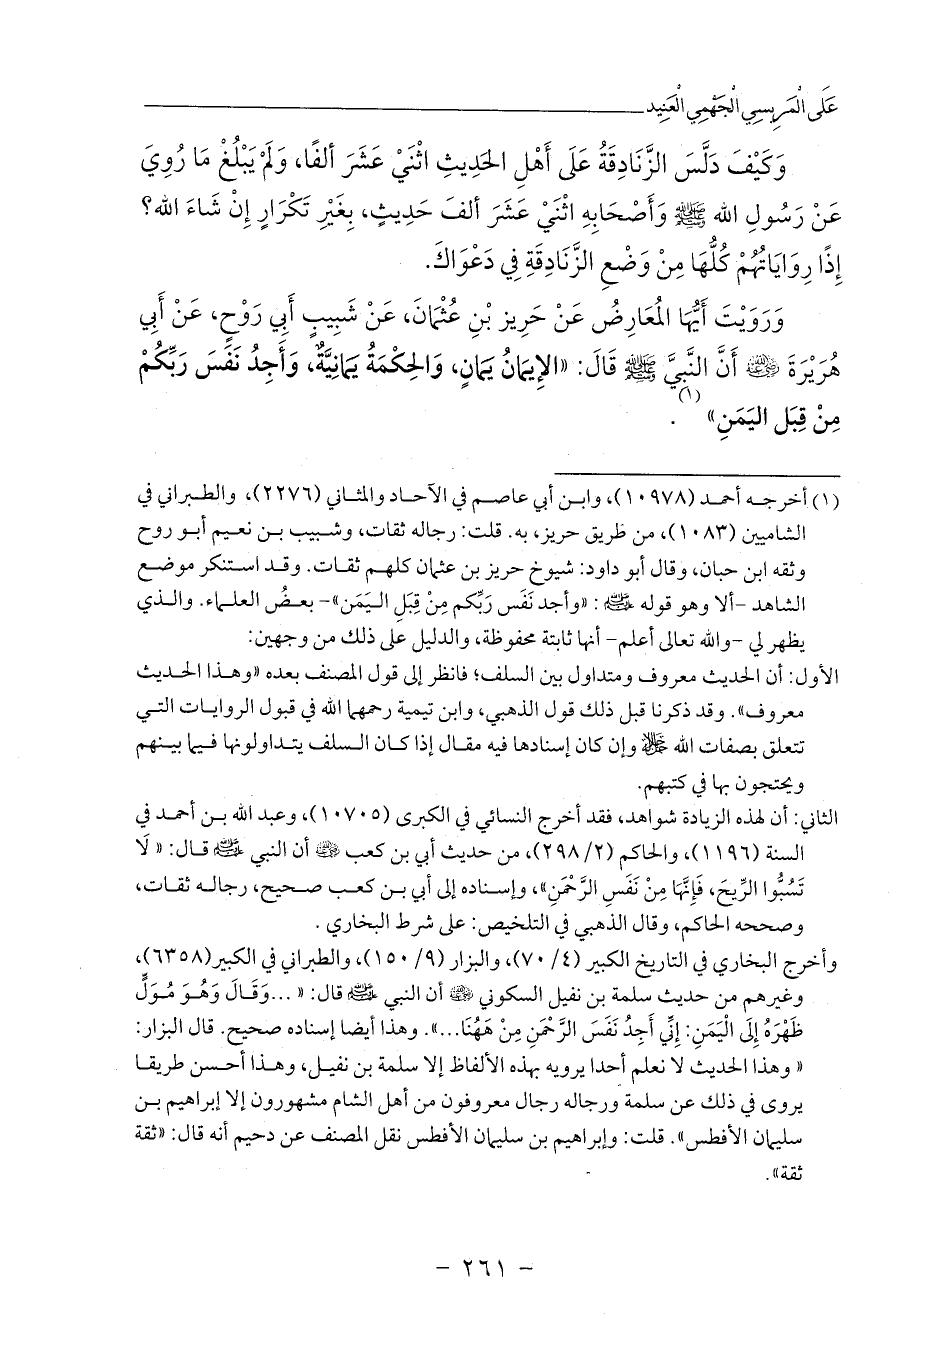 عَلَى الْمَرِيسِي الْجَهْمِي الْعَنِيد
وَكَيْفَ دَلَّسَ الزَّنَادِقَةُ عَلَى أَهْلِ الحَدِيثِ اثْنَيْ عَشَرَ أَلفًا، وَلَمْ يَبْلُغْ مَا رُوِيَ
عَنْ رَسُولِ الله ﷺ وَأَصْحَابِهِ اثْنَيْ عَشَرَ أَلفَ حَدِيثٍ، بِغَيْرِ تَكْرَارٍ إِنْ شَاءَ الله؟
إِذًا رِوَايَاتُهُمْ كُلُّهَا مِنْ وَضْعِ الزَّنَادِقَةِ فِي دَعْوَاكَ.
وَرَوَيْتَ أَيُّهَا المُعَارِضُ عَنْ حَرِيز بْنِ عُثْمَانَ، عَنْ شَبِيبٍ أَبِي رَوْحٍ، عَنْ أَبِي
هُرَيْرَةَ رضي الله عنه أَنَّ النَّبِيَّ ﷺ قَالَ: «الإِيمَانُ يَمَانٍ، وَالحِكْمَةُ يَمَانِيَّةٌ، وَأَجِدُ نَفَسَ رَبِّكُمْ
مِنْ قِبَلِ اليَمَنِ» (١).
(١) أخرجه أحمد (١٠٩٧٨)، وابن أبي عاصم في الآحاد والمثاني (٢٢٧٦)، والطبراني في
الشاميين (١٠٨٣)، من طريق حريز، به. قلت: رجاله ثقات، وشبيب بن نعيم أبو روح
وثقه ابن حبان، وقال أبو داود: شيوخ حريز بن عثمان كلهم ثقات. وقد استنكر موضع
الشاهد -ألا وهو قوله ﷺ : «وأجد نَفَس رَبِّكم مِنْ قِبَلِ اليَمَن»- بعضُ العلماء. والذي
يظهر لي -والله تعالى أعلم- أنها ثابتة محفوظة، والدليل على ذلك من وجهين:
الأول: أن الحديث معروف ومتداول بين السلف؛ فانظر إلى قول المصنف بعده «وهذا الحديث
معروف». وقد ذكرنا قبل ذلك قول الذهبي، وابن تيمية رحمهما الله في قبول الروايات التي
تتعلق بصفات الله ﷻ وإن كان إسنادها فيه مقال إذا كان السلف يتداولونها فيما بينهم
ويحتجون بها في كتبهم.
الثاني: أن لهذه الزيادة شواهد، فقد أخرج النسائي في الكبرى (١٠٧٠٥)، وعبد الله بن أحمد في
السنة (١١٩٦)، والحاكم (٢/ ٢٩٨)، من حديث أبي بن كعب رضي الله عنه أن النبي ﷺ قال: « لَا
تَسُبُّوا الرِّيحَ، فَإِنَّهَا مِنْ نَفَسِ الرَّحْمَنِ»، وإسناده إلى أبي بن كعب صحيح، رجاله ثقات،
وصححه الحاكم، وقال الذهبي في التلخيص: على شرط البخاري .
وأخرج البخاري في التاريخ الكبير (٤/ ٧٠)، والبزار (٩/ ١٥٠)، والطبراني في الكبير(٦٣٥٨)،
وغيرهم من حديث سلمة بن نفيل السكوني رضي الله عنه أن النبي ﷺ قال: « ...وَقَالَ وَهُوَ مُوَلٍّ
ظَهْرَهُ إِلَى الْيَمَنِ: إِنِّي أَجِدُ نَفَسَ الرَّحْمَنِ مِنْ هَهُنَا...». وهذا أيضا إسناده صحيح. قال البزار:
« وهذا الحديث لا نعلم أحدا يرويه بهذه الألفاظ إلا سلمة بن نفيل، وهذا أحسن طريقا
يروى في ذلك عن سلمة ورجاله رجال معروفون من أهل الشام مشهورون إلا إبراهيم بن
سليمان الأفطس». قلت: وإبراهيم بن سليمان الأفطس نقل المصنف عن دحيم أنه قال: «ثقة
ثقة».
- ٢٦١ -